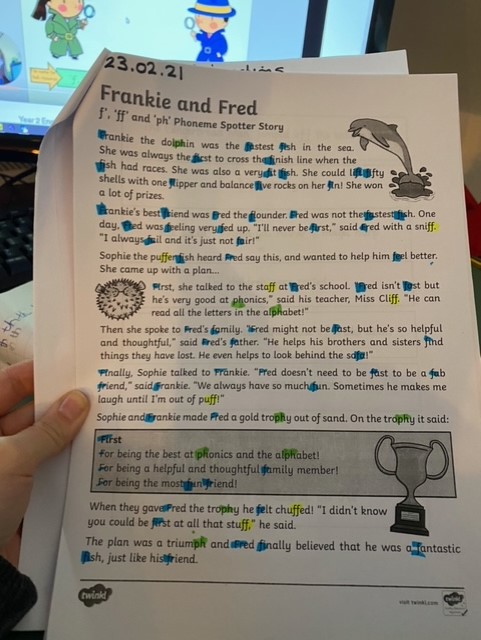 23.02.21
Year 2 En
Frankie and Fred
f', 'ff' and 'ph' Phoneme Spotter Story
Frankie the dolphin was the fastest fish in the sea.
She was always the first to cross the finish line when the
fish had races. She was also a very fit fish. She could lift fifty
shells with one flipper and balance five rocks on her fin! She won
a lot of prizes.
Frankie's best friend was Fred the flounder. Fred was not the fastest fish. One
day, Fred was feeling very fed up. "I'll never be first," said Fred with a sniff.
"I always fail and it's just not fair!"
Sophie the pufferfish heard Fred say this, and wanted to help him feel better.
She came up with a plan...
First, she talked to the staff at Fred's school. "Fred isn't fast but
he's very good at phonics," said his teacher, Miss Cliff. "He can
read all the letters in the alphabet!"
Then she spoke to Fred's family. "Fred might not be fast, but he's so helpful
and thoughtful," said Fred's father. "He helps his brothers and sisters find
things they have lost. He even helps to look behind the sofa!"
Finally, Sophie talked to Frankie. "Fred doesn't need to be fast to be a fab
friend," said Frankie. "We always have so much fun. Sometimes he makes me
laugh until I'm out of puff!"
Sophie and Frankie made Fred a gold trophy out of sand. On the trophy it said:
First
For being the best at phonics and the alphabet!
For being a helpful and thoughtful family member!
For being the most fun friend!
When they gave Fred the trophy he felt chuffed! "I didn't know
you could be first at all that stuff," he said.
The plan was a triumph and Fred finally believed that he was a fantastic
fish, just like his friend.
twinkl
visit twinkl.com